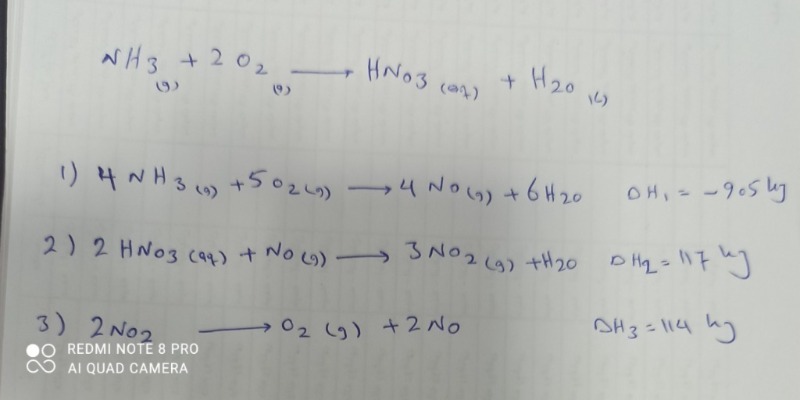 NH3(g) + 2 O2(g) ⟶ HNO3(aq) + H2O(l)
1) 4 NH3(g) + 5 O2(g) ⟶ 4 NO(g) + 6 H2O ΔH1 = -905 kj
2) 2 HNO3(aq) + NO(g) ⟶ 3 NO2(g) + H2O ΔH2 = 117 kj
3) 2 NO2 ⟶ O2(g) + 2 NO ΔH3 = 114 kj
REDMI NOTE 8 PRO
AI QUAD CAMERA